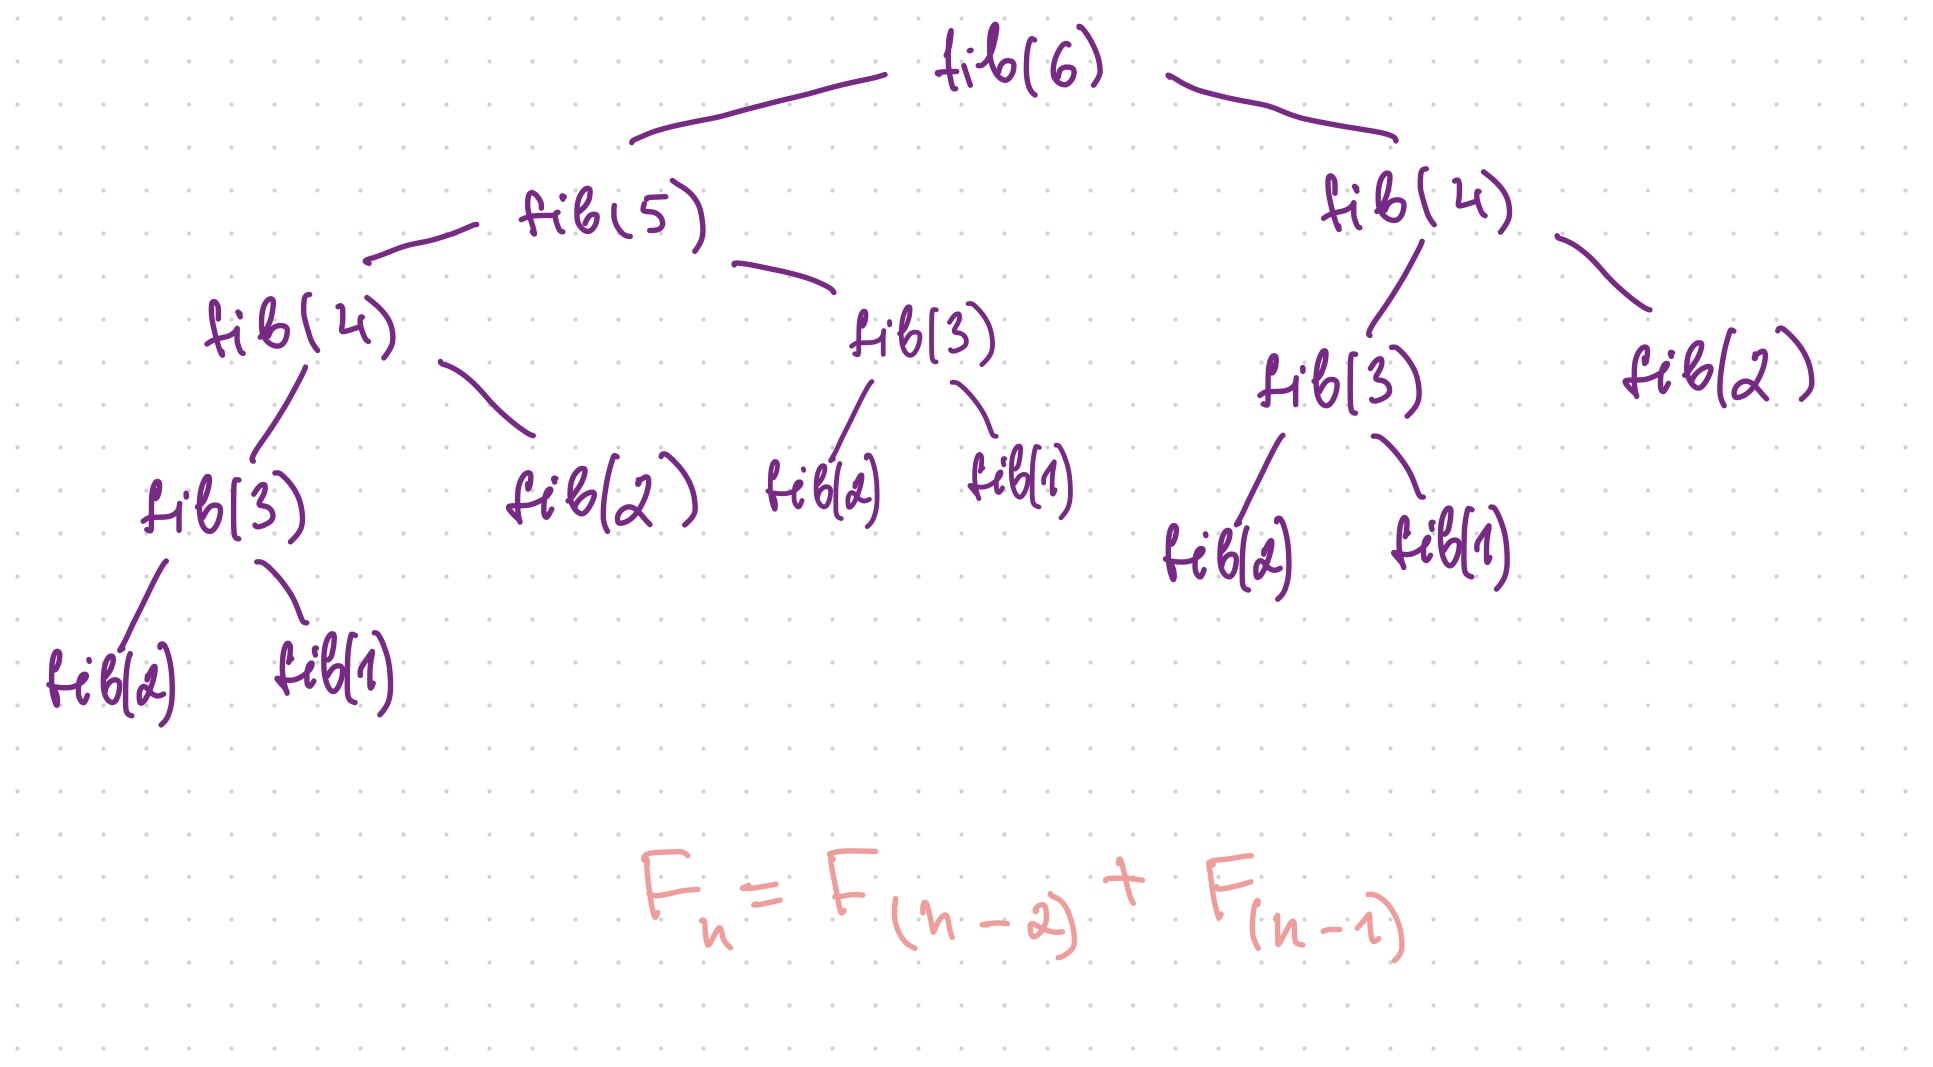 fib(6)
fib(5) fib(4)
fib(4) fib(3) fib(3) fib(2)
fib(3) fib(2) fib(2) fib(1) fib(2) fib(1)
fib(2) fib(1)
F_n = F_(n-2) + F_(n-1)